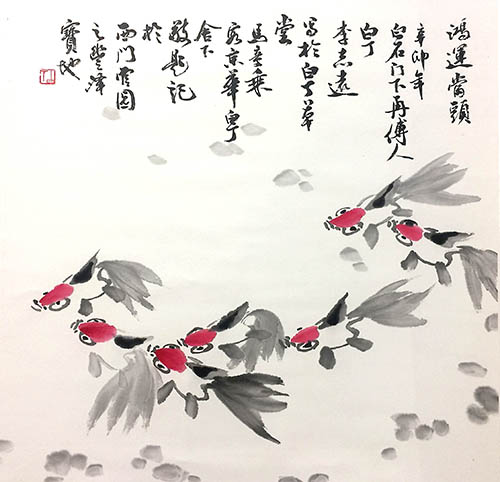 鴻運當頭
辛卯年
白石門下再傳人
白丁
李志遠
寫於白丁草
堂
馬青乘
客京華寓
舍下
敬題記
於
西門雪園
之豐澤
寶地